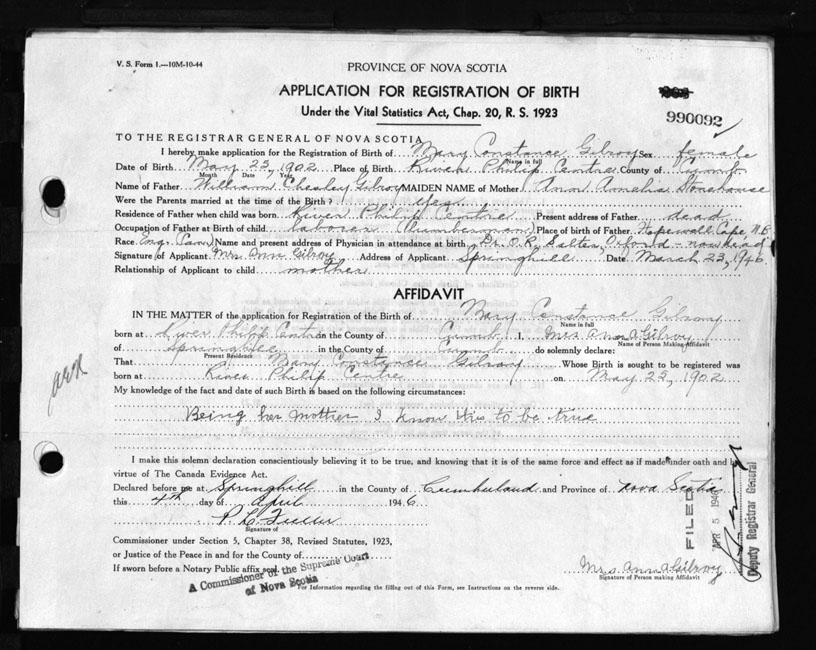 V. S. Form 1.—10M-10-44
PROVINCE OF NOVA SCOTIA
APPLICATION FOR REGISTRATION OF BIRTH
Under the Vital Statistics Act, Chap. 20, R. S. 1923
990092
TO THE REGISTRAR GENERAL OF NOVA SCOTIA
I hereby make application for the Registration of Birth of Mary Constance Gilroy Sex female
Name in full
Date of Birth May 25, 1902 Place of Birth River Philip Centre County of Cumb.
Month Date Year
Name of Father William Chesley Gilroy MAIDEN NAME of Mother Ann Amelia Stonehouse
Were the Parents married at the time of the Birth? yes
Residence of Father when child was born River Philip Centre Present address of Father dead
Occupation of Father at Birth of child laborer (lumberman) Place of birth of Father Hopewell Cape N.B.
Race Eng. Can. Name and present address of Physician in attendance at birth Dr. O. R. Salter, Oxford - now dead
Signature of Applicant Mrs Ann Gilroy Address of Applicant Springhill Date March 23, 1946
Relationship of Applicant to child mother
AFFIDAVIT
IN THE MATTER of the application for Registration of the Birth of Mary Constance Gilroy
Name in full
born at River Philip Centre in the County of Cumb. I, Mrs Ann A Gilroy
Name of Person Making Affidavit
of Springhill in the County of Cumb. do solemnly declare:
Present Residence
That Mary Constance Gilroy Whose Birth is sought to be registered was
born at River Philip Centre on May 25, 1902
My knowledge of the fact and date of such Birth is based on the following circumstances:
Being her mother I know this to be true
I make this solemn declaration conscientiously believing it to be true, and knowing that it is of the same force and effect as if made under oath and by
virtue of The Canada Evidence Act.
Declared before me at Springhill in the County of Cumberland and Province of Nova Scotia
this 4th day of April 1946
Signature of
Commissioner under Section 5, Chapter 38, Revised Statutes, 1923,
or Justice of the Peace in and for the County of
If sworn before a Notary Public affix seal.
A Commissioner of the Supreme Court
of Nova Scotia
Mrs Ann A Gilroy
Signature of Person making Affidavit
For Information regarding the filling out of this Form, see Instructions on the reverse side.
FILED
APR 5 1946
Deputy Registrar General